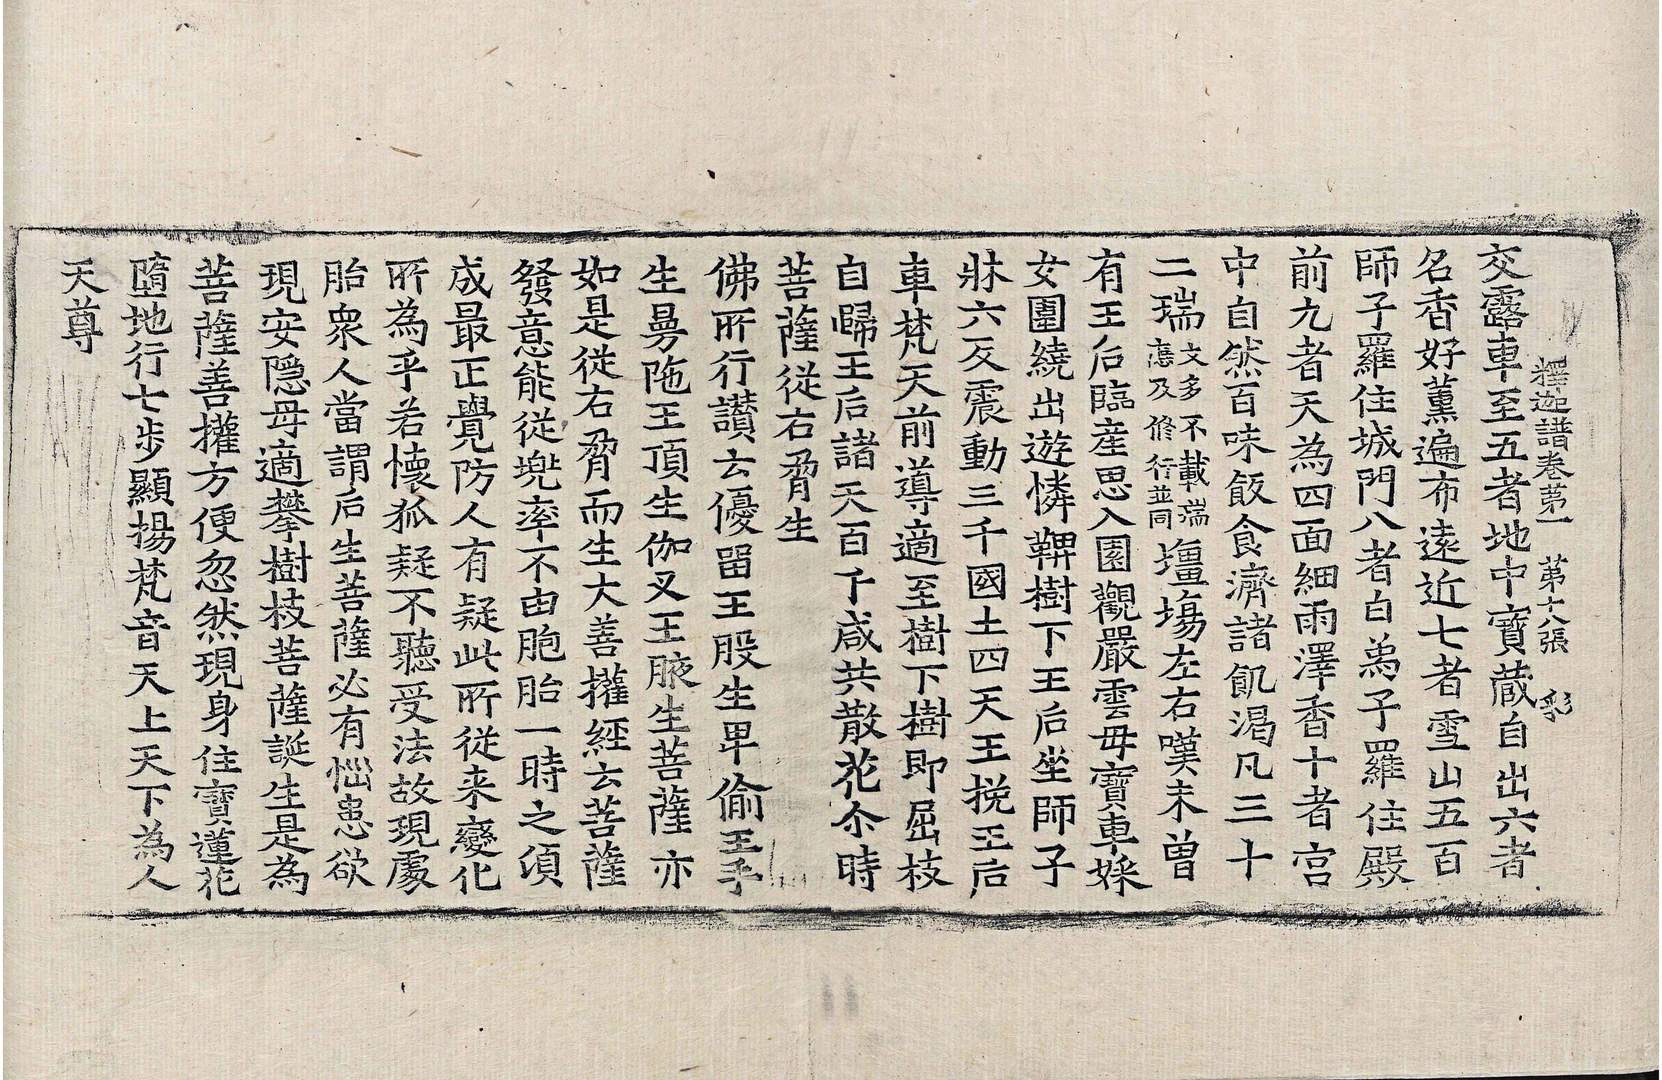 釋迦譜卷第一 第十八張 彩
交露車至五者地中寶藏自出六者
名香好薰遍布遠近七者雪山五百
師子羅住城門八者白象子羅住殿
前九者天為四面細雨澤香十者宮
中自然百味飯食濟諸飢渴凡三十
二瑞文多不載瑞應及修行並同壃場左右嘆未曽
有王后臨產思入園觀嚴雲母寶車婇
女圍繞出遊憐鞞樹下王后坐師子
牀六反震動三千國土四天王挽王后
車梵天前導適至樹下樹即屈枝
自歸王后諸天百千咸共散花尒時
菩薩從右脅生
佛所行讃云優留王股生卑偷王手
生曼陁王頂生伽叉王腋生菩薩亦
如是從右脅而生大善攉經云菩薩
發意能從兜率不由胞胎一時之湏
成最正覺防人有疑此所從来變化
所為乎若懷狐疑不聽受法故現處
胎衆人當謂后生菩薩必有惱患欲
現安隱母適攀樹枝菩薩誕生是為
菩薩善攉方便忽然現身住寶蓮花
墮地行七步顯揚梵音天上天下為人
天尊